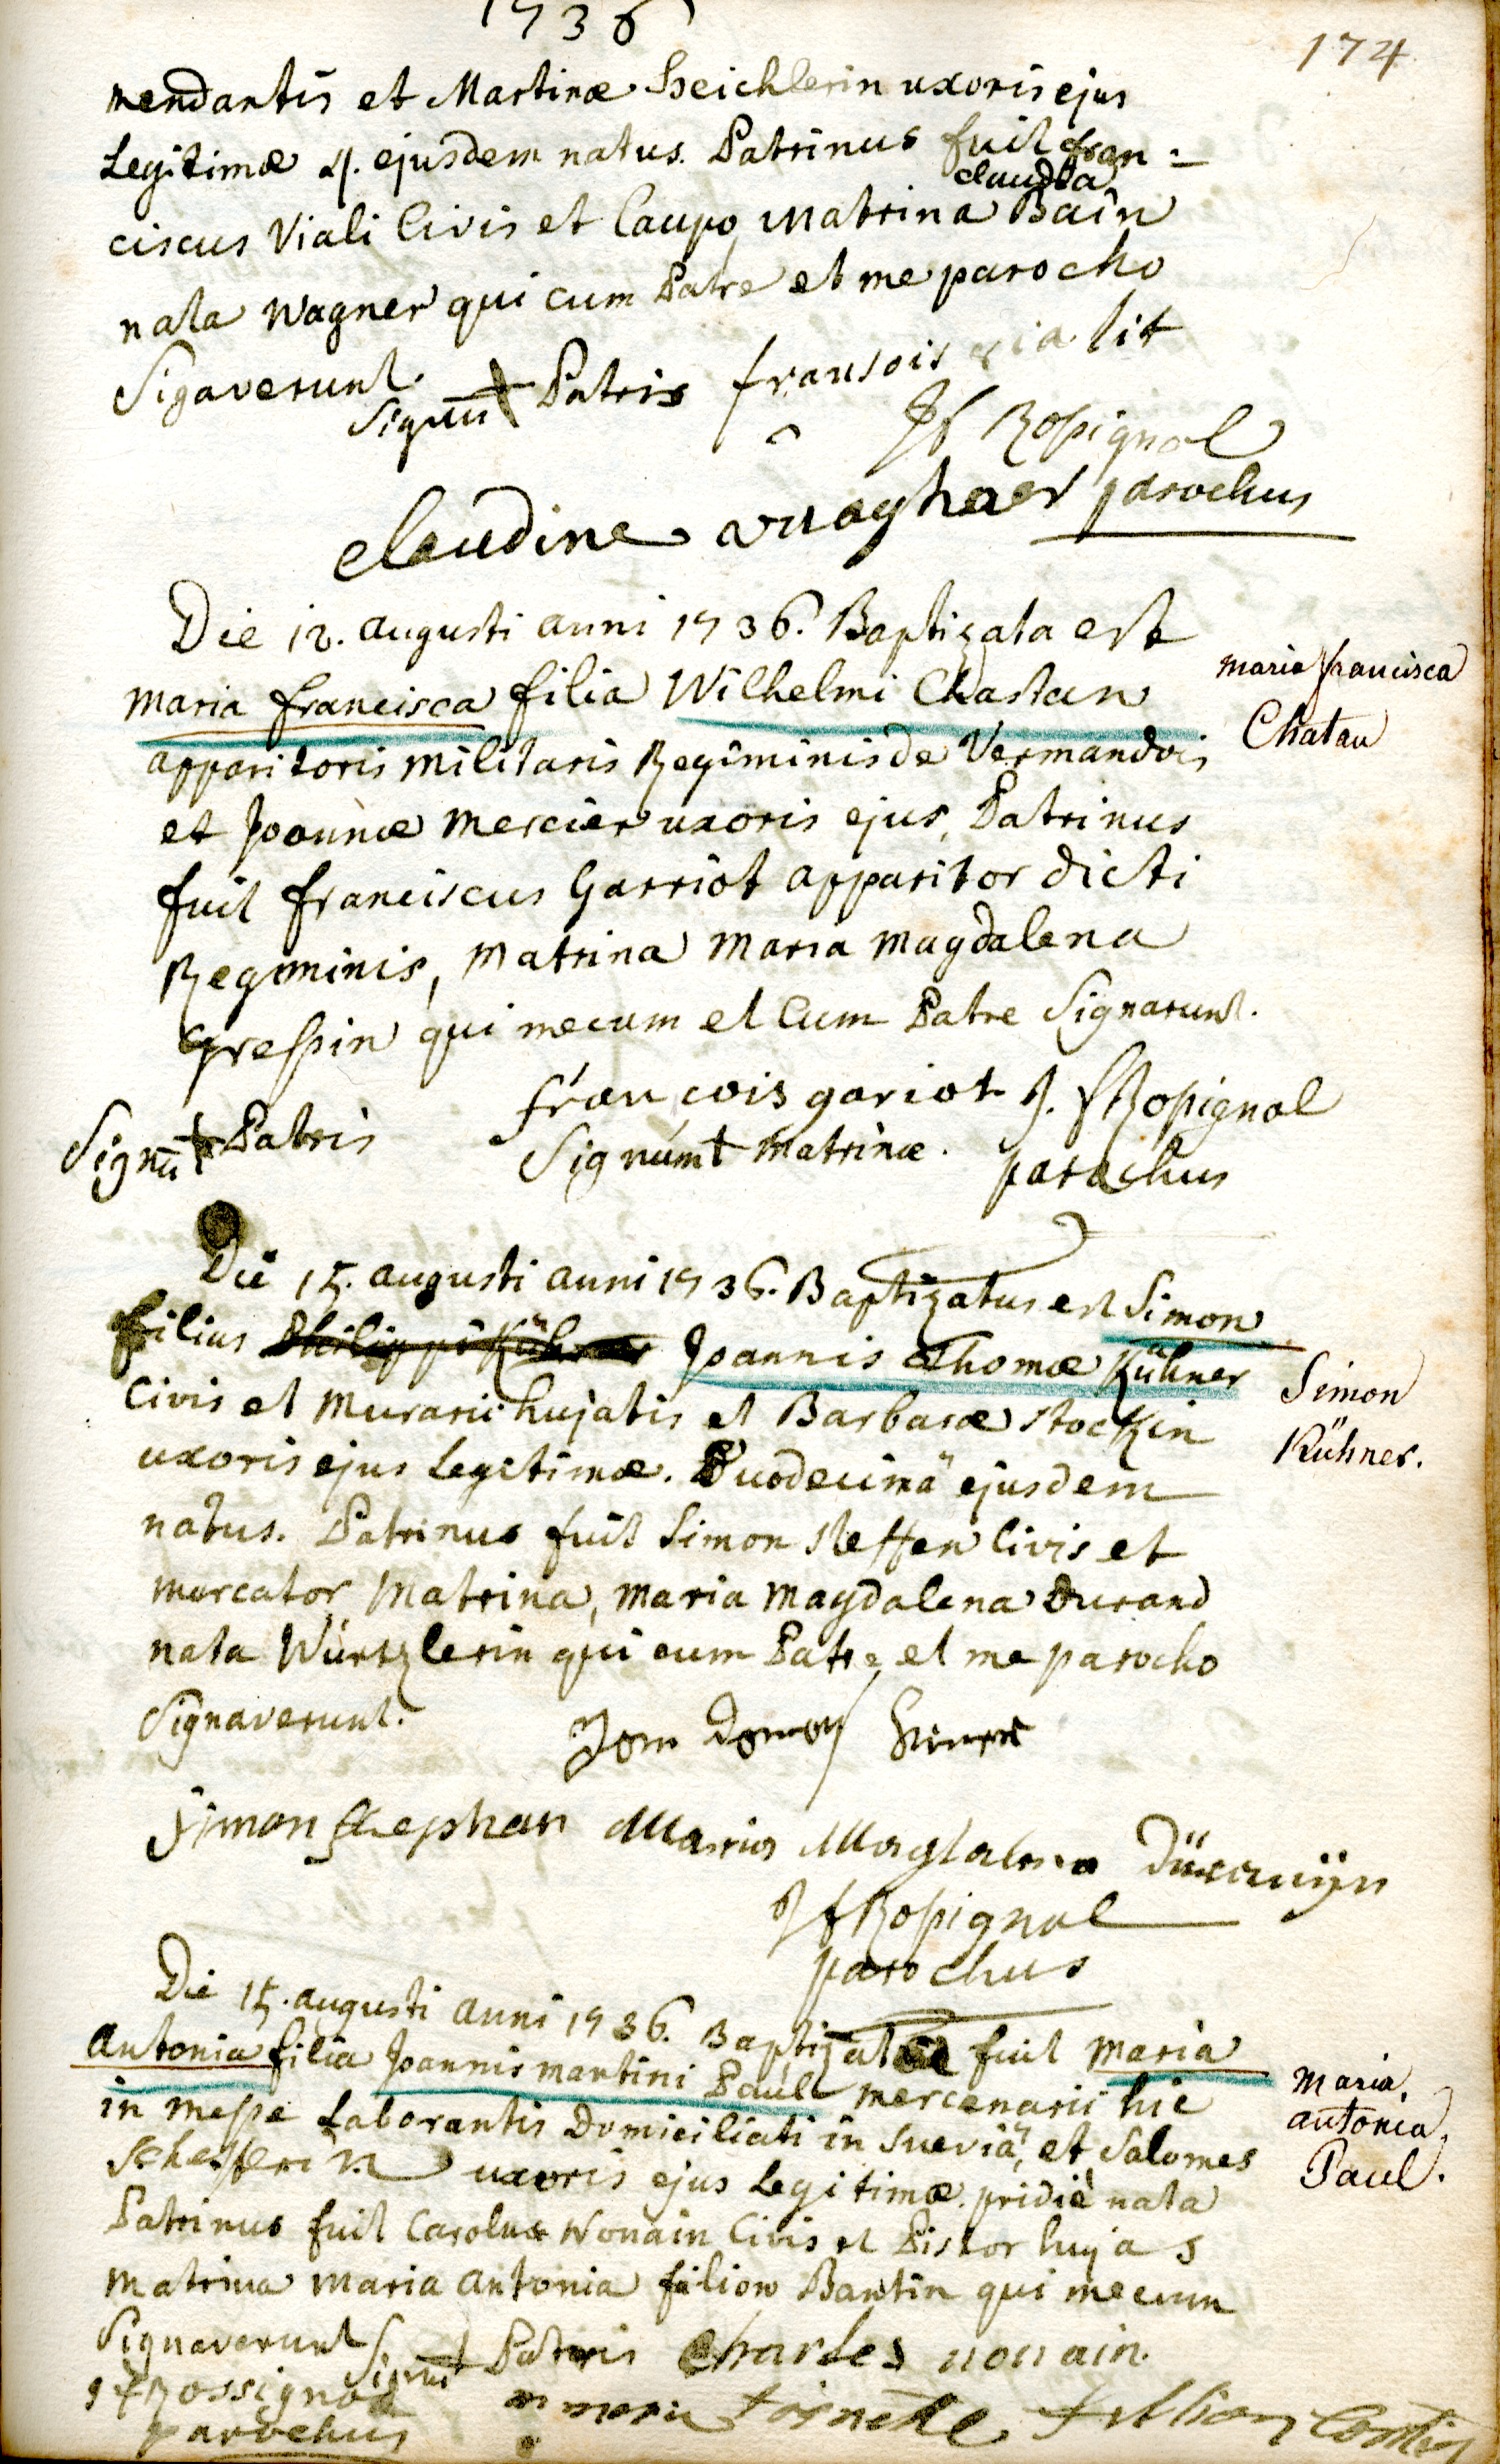 1736
174
mendantis et Martinæ Heichlerin uxoris ejus
Legitimæ 4. ejusdem natus. Patrinus fuit fran=
claudia
ciscus Viali Civis et Caupo, Matrina Bain
nata Wagner qui cum Patre et me parocho
Sigaverunt.
Signū + Patris fransois
Jf Rossignol
claudine parochus
Die 12. augusti anni 1736. Baptizata est
maria francisca filia Wilhelmi Chastan
apparitoris militaris Regiminis de Vermandois
et Joannæ mercier uxoris ejus, Patrinus
fuit franciscus Garriot apparitor dicti
Regiminis, Matrina Maria Magdalena
Gressin qui mecum et Cum Patre Signarunt.
maria francisca
Chatau
Signū + Patris
françois gariot J. f Rossignol
Signum + matrinæ. parochus
Die 15. augusti anni 1736. Baptizatus est Simon
filius Philippi Kühner Joannis Thomæ Kühner
Civis et Murarii hujatis et Barbaræ Stockin
uxoris ejus Legitimæ. Duodecimâ ejusdem
natus. Patrinus fuit Simon steffen Civis et
mercator Matrina, Maria Magdalena Durand
nata Würtzlerin qui cum Patre et me parocho
Signaverunt.
Simon
Kühner.
Simon Stephan Maria Magtalena
Jf Rossignol
parochus
Die 15. augusti anni 1736. Baptizata fuit Maria
Antonia filia Joannis martini Paul mercenarii hic
in messe Laborantis Domiciliati in Sueviâ, et Salomes
Schefferin uxoris ejus Legitimæ. pridiè nata
Patrinus fuit Carolus Nonain Civis et Pistor hujas
Matrina Maria Antonia filion Bantin qui mecum
Signaverunt
Maria
antonia
Paul.
Signū + Patris Charles nonain.
Jf Rossignol
parochus